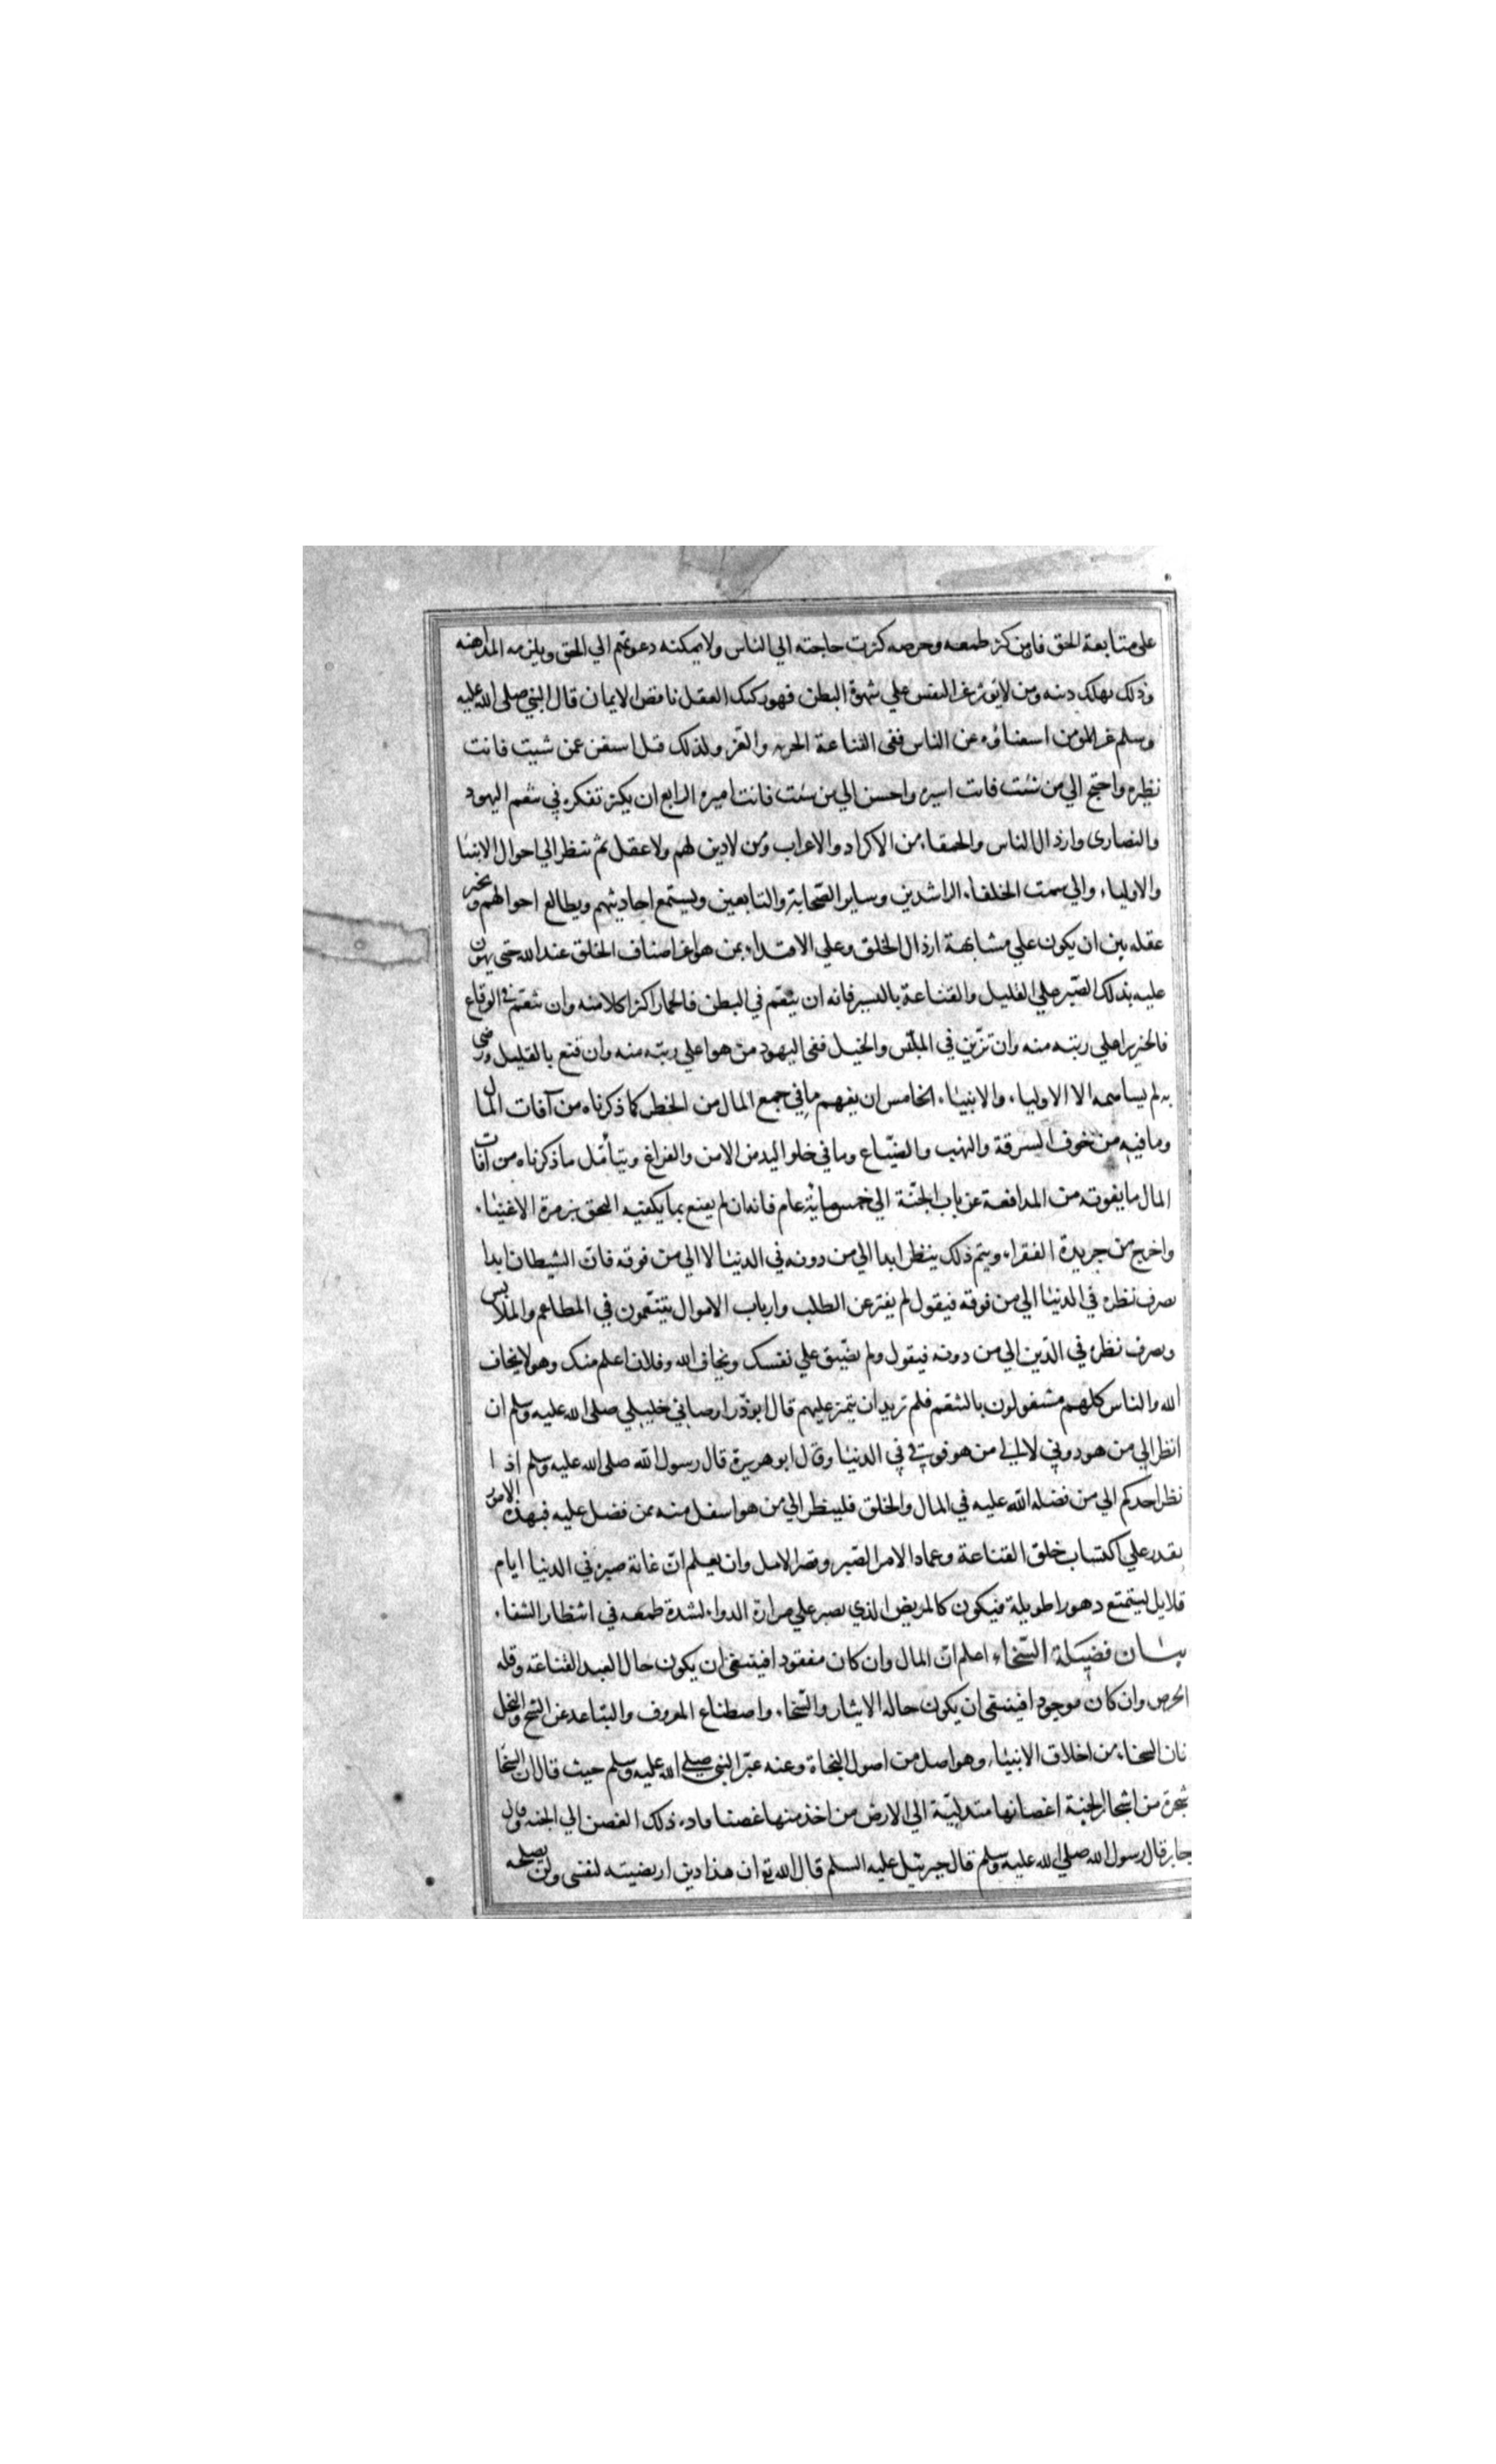 على متابعة الحق فان من كثر طمعه وحرصه كثرت حاجته الي الناس ولا يمكنه دعوتهم الي الحق ويلزمه المداهنه
وذلك يهلك دينه ومن لا يوثر عز النفس علي شهوة البطن فهو ركيك العقل ناقص الايمان قال النبي صلى الله عليه
وسلم عز المومن استغناؤه عن الناس ففى القناعة الحريه والعز ولذلك قيل استغن عمن شيت فانت
نظيره واحتج الي من شئت فانت اسيره واحسن الي من شئت فانت اميره الرابع ان يكثر تفكره في تنعم اليهود
والنصارى وارذال الناس والحمقاء من الاكراد والاعراب ومن لا دين لهم ولا عقل ثم ينظر الي احوال الانبيا
والاولياء والي سمت الخلفاء الراشدين وساير الصحابة والتابعين ويستمع احاديثهم ويطالع احوالهم ويخير
عقله بين ان يكون علي مشابهة ارذال الخلق وعلي الاقتداء بمن هو اعز اصناف الخلق عند الله حتى يهون
عليه بذلك الصبر علي القليل والقناعة باليسير فانه ان يتنعم في البطن فالحمار اكثر اكلا منه وان تنعم في الوقاع
فالخنزير اعلي رتبه منه وان تزين في الملبس والخيل ففى اليهود من هو اعلي رتبه منه وان قنع بالقليل ورضي
به لم يساهمه الا الاولياء والانبياء الخامس ان يفهم ما في جمع المال من الخطر كما ذكرناه من آفات المال
وما فيه من خوف السرقة والنهب والضياع وما في خلو اليد من الامن والفراغ ويتأمل ما ذكرناه من افات
المال ما يفوته من المدافعة عن باب الجنة الي خمسماية عام فانه ان لم يقنع بما يكفيه التحق بزمرة الاغنياء
واخرج من جريدة الفقراء ويتم ذلك ينظر ابدا الي من دونه في الدنيا لا الي من فوقه فان الشيطان ابدا
يصرف نظره في الدنيا الي من فوقه فيقول لم يفتر عن الطلب وارباب الاموال يتنعمون في المطاعم والملابس
ويصرف نظره في الدين الي من دونه فيقول ولم يضيق علي نفسك ويخاف الله وفلان اعلم منك وهو لا يخاف
الله والناس كلهم مشغولون بالتنعم فلم تريد ان يتميز عليهم قال ابو ذر اوصاني خليلي صلى الله عليه وسلم ان
انظر الي من هو دوني لا الي من هو فوقي في الدنيا وقال ابو هريرة قال رسول الله صلى الله عليه وسلم اذا
نظر احدكم الي من فضله الله عليه في المال والخلق فلينظر الي من هو اسفل منه ممن فضل عليه فبهذه الامور
يقدر علي اكتساب خلق القناعة وعماد الامر الصبر وقصر الامل وان يعلم ان غاية صبره في الدنيا ايام
قلايل ليتمتع دهورا طويلة فيكون كالمريض الذي يصبر علي مرارة الدواء لشدة طمعه في انتظار الشفاء
بيان فضيلة السخاء اعلم ان المال وان كان مفقودا فينبغى ان يكون حال العبد القناعة وقله
الحرص وان كان موجودا فينبغى ان يكون حاله الايثار والسخاء واصطناع المعروف والتباعد عن الشح والبخل
فان السخاء من اخلاق الانبياء وهو اصل من اصول النجاة وعنه عبر النبي صلي الله عليه وسلم حيث قال ان السخا
شجرة من اشجار الجنة اغصانها متدلية الي الارض من اخذ منها غصنا قاده ذلك الغصن الي الجنه وقال
جابر قال رسول الله صلي الله عليه وسلم قال جبرئيل عليه السلم قال الله تع ان هذا دين ارتضيته لنفسى ولن يصلحه